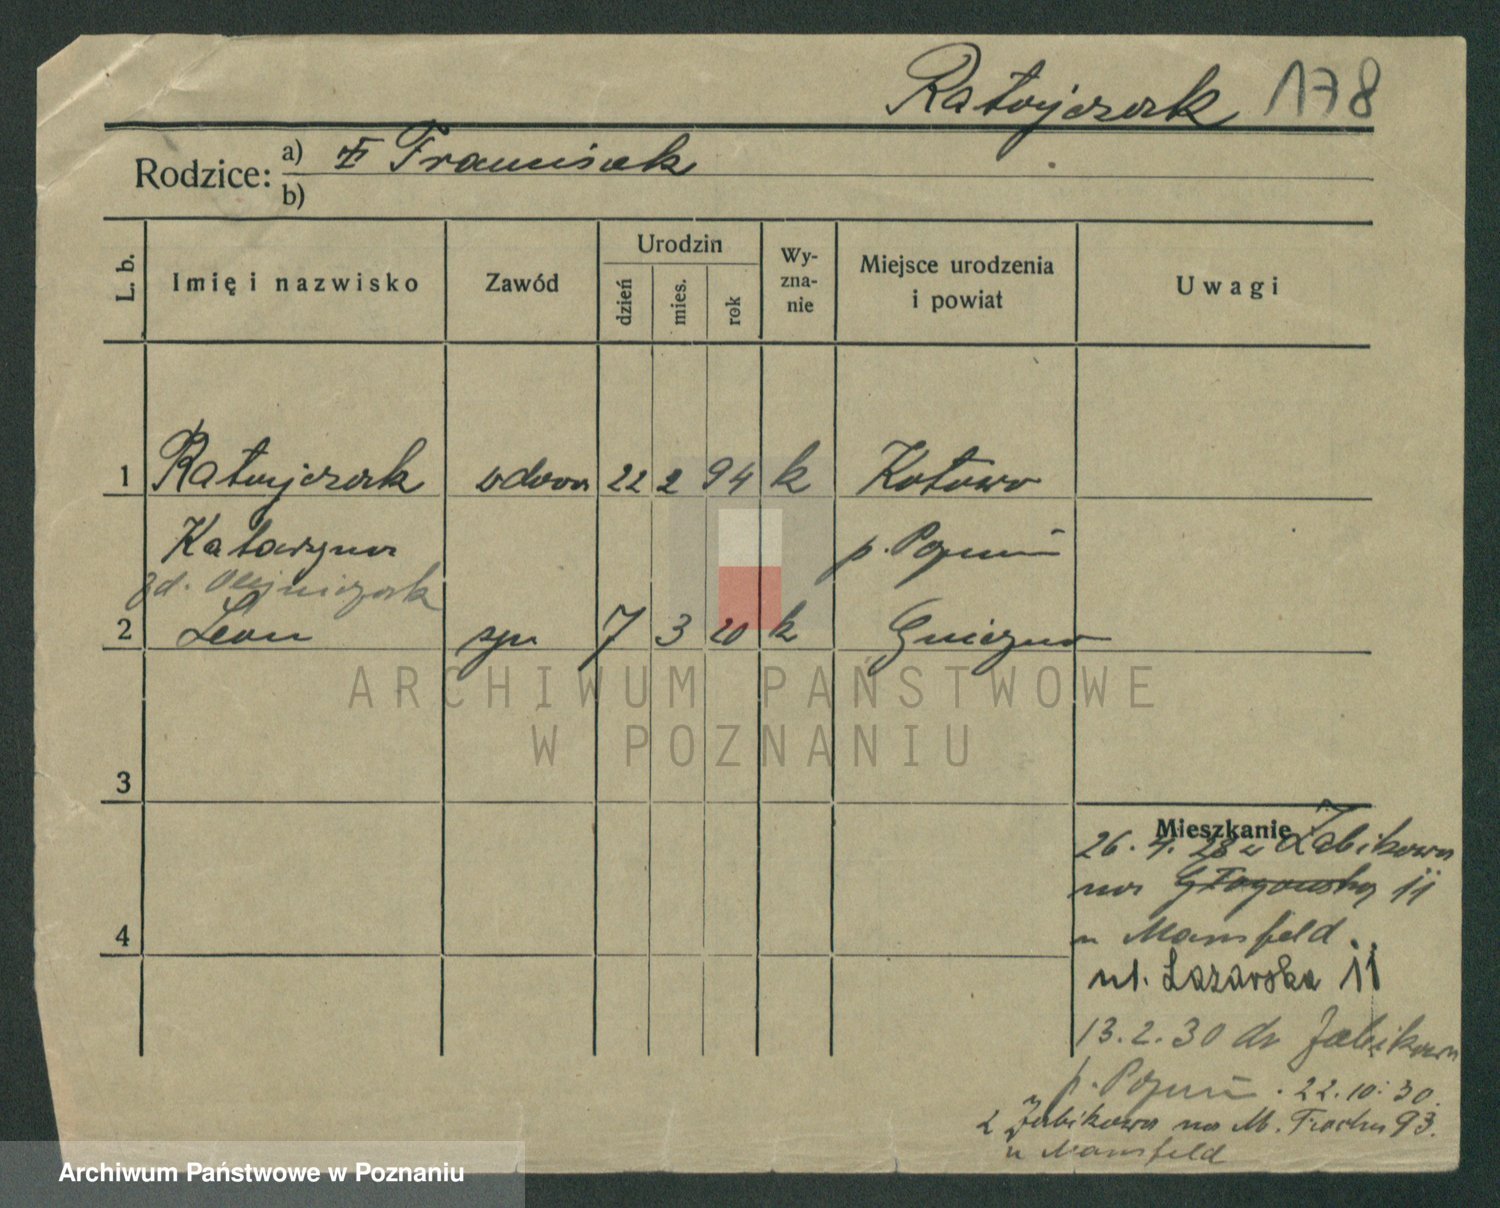 Ratajczak 178
Rodzice: a) Franciszek
b)
L. b. Imię i nazwisko Zawód Urodzin dzień mies. rok Wy-zna-nie Miejsce urodzenia i powiat Uwagi
1 Ratajczak wdowa 22 2 94 k Kotowo
Katarzyna p. Poznań
zd. Olejniczak
2 Leon syn 7 3 20 k Gniezno
ARCHIWUM PAŃSTWOWE
W POZNANIU
3
Mieszkanie
26. 4. 28 z Żabikowa
na Głogowską 11
4
u Mansfeld
ul. Łazarska 11
13. 2. 30 do Żabikowa
p. Poznań. 22. 10. 30.
z Żabikowa na M. Focha 93.
u Mansfeld
Archiwum Państwowe w Poznaniu